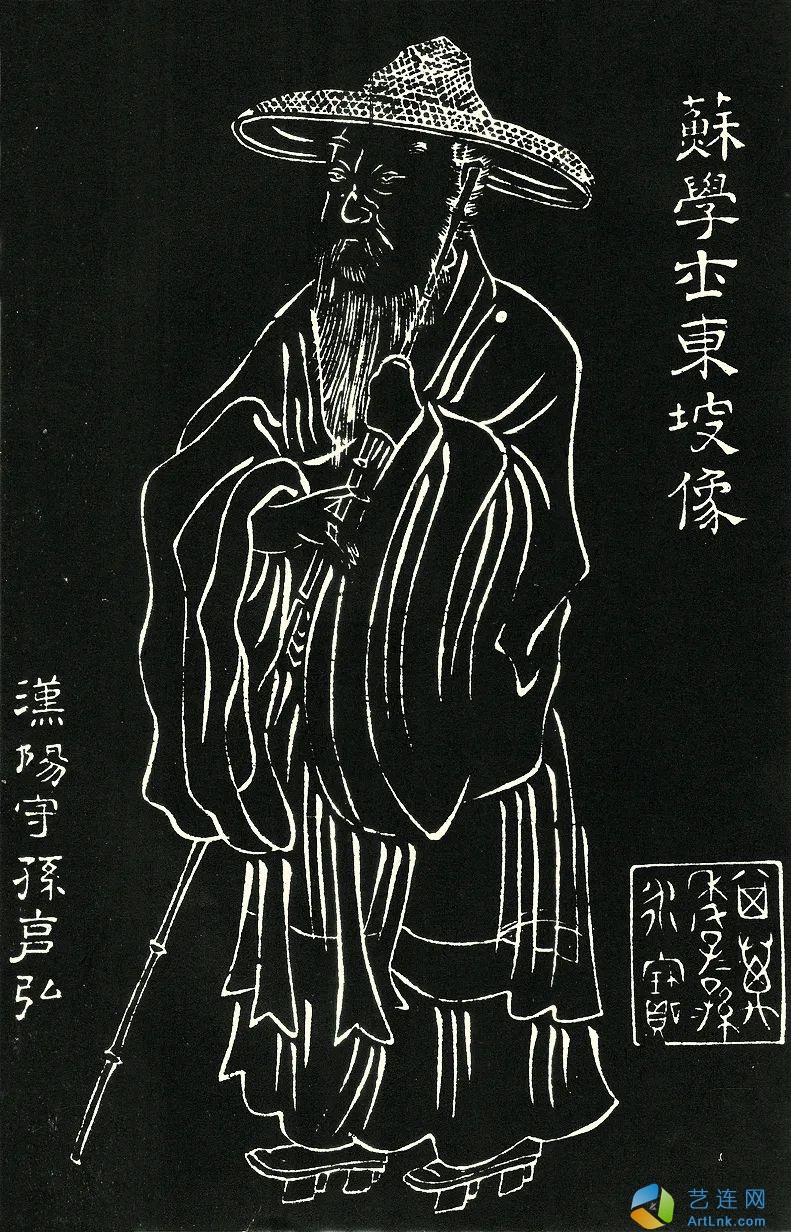 蘇學士東坡像
漢陽守孫克弘
永寶
艺连网
ArtLnk.com